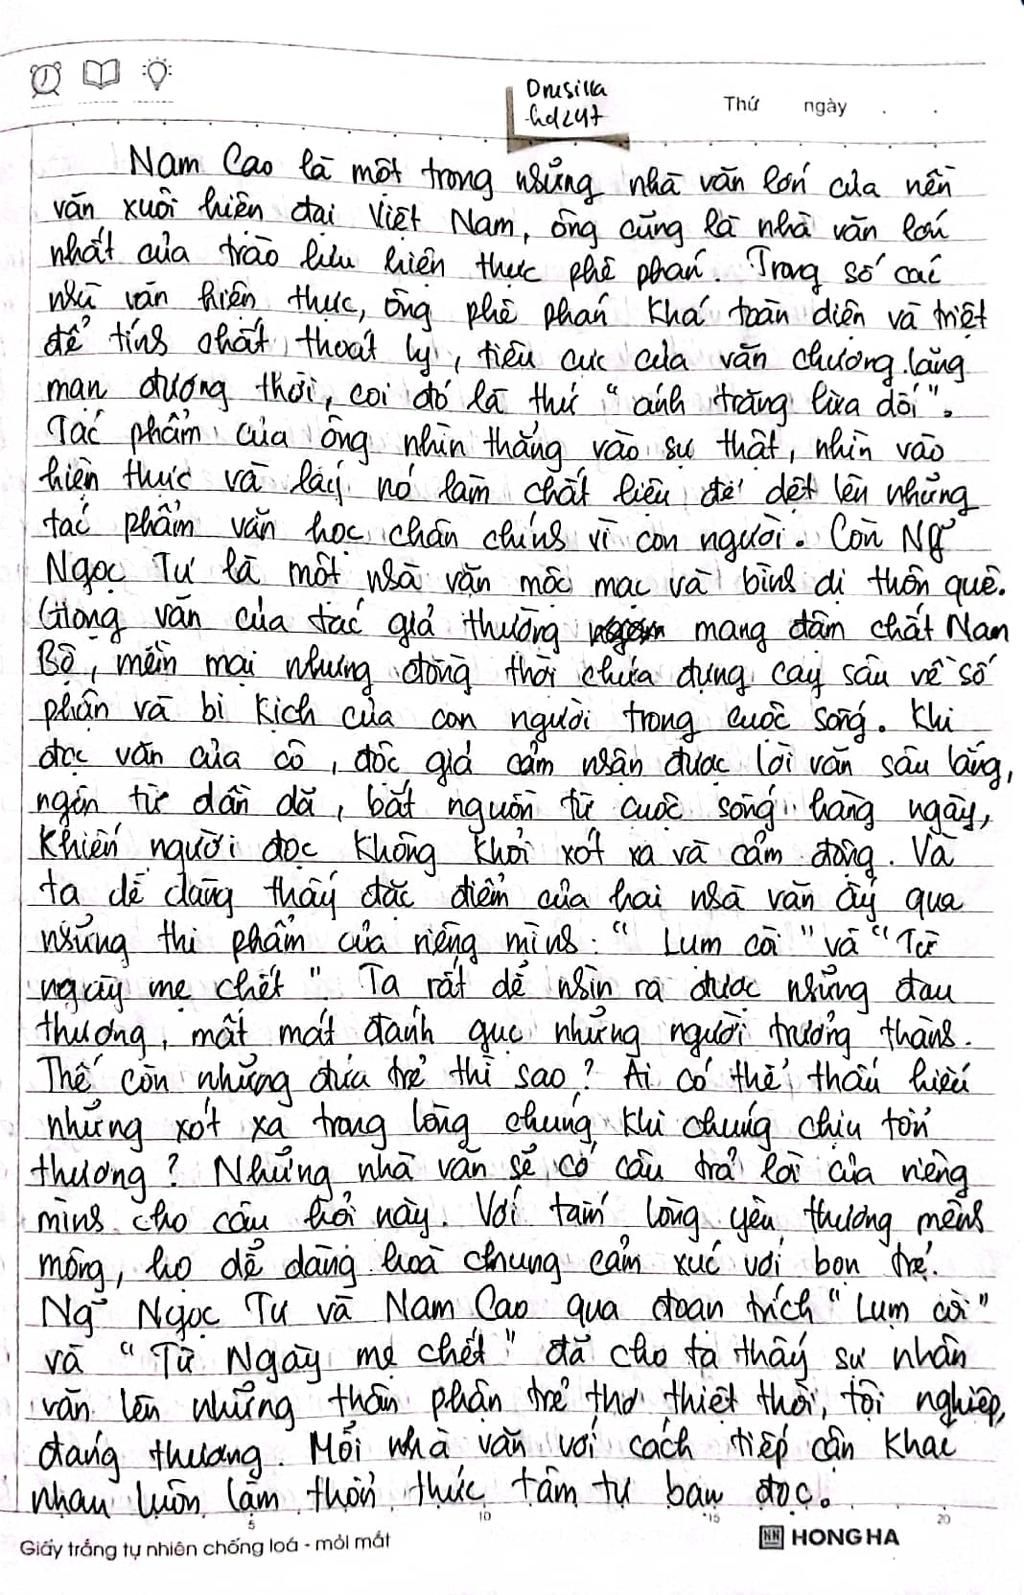 Drusilla
hd247
Thứ ngày . .
Nam Cao là một trong những nhà văn lớn của nền
văn xuôi hiện đại Việt Nam, ông cũng là nhà văn lớn
nhất của trào lưu hiện thực phê phán. Trong số các
nhà văn hiện thực, ông phê phán khá toàn diện và triệt
để tính chất thoát ly, tiêu cực của văn chương lãng
mạn đương thời, coi đó là thứ “ánh trăng lừa dối”.
Tác phẩm của ông nhìn thẳng vào sự thật, nhìn vào
hiện thực và lấy nó làm chất liệu để dệt lên những
tác phẩm văn học chân chính vì con người. Còn Ng~
Ngọc Tư là một nhà văn mộc mạc và bình dị thôn quê.
Giọng văn của tác giả thường mang đậm chất Nam
Bộ, mềm mại nhưng đồng thời chứa đựng cay sâu về số
phận và bi kịch của con người trong cuộc sống. Khi
đọc văn của cô, độc giả cảm nhận được lời văn sâu lắng,
ngôn từ dân dã, bắt nguồn từ cuộc sống hàng ngày,
khiến người đọc không khỏi xót xa và cảm động. Và
ta dễ dàng thấy đặc điểm của hai nhà văn ấy qua
những thi phẩm của riêng mình: “Lụm còi” và “Từ
ngày mẹ chết”. Ta rất dễ nhìn ra được những đau
thương, mất mát đánh gục những người trưởng thành.
Thế còn những đứa trẻ thì sao? Ai có thể thấu hiểu
những xót xa trong lòng chúng khi chúng chịu tổn
thương? Những nhà văn sẽ có câu trả lời của riêng
mình cho câu hỏi này. Với tấm lòng yêu thương mênh
mông, họ dễ dàng hoà chung cảm xúc với bọn trẻ.
Ng~ Ngọc Tư và Nam Cao qua đoạn trích “Lụm còi”
và “Từ Ngày mẹ chết” đã cho ta thấy sự nhân
văn lên những thân phận trẻ thơ thiệt thòi, tội nghiệp,
đáng thương. Mỗi nhà văn với cách tiếp cận khác
nhau luôn làm thổn thức tâm tư bạn đọc.
5 10 15 20
Giấy trắng tự nhiên chống loá - mỏi mắt HH HONG HA